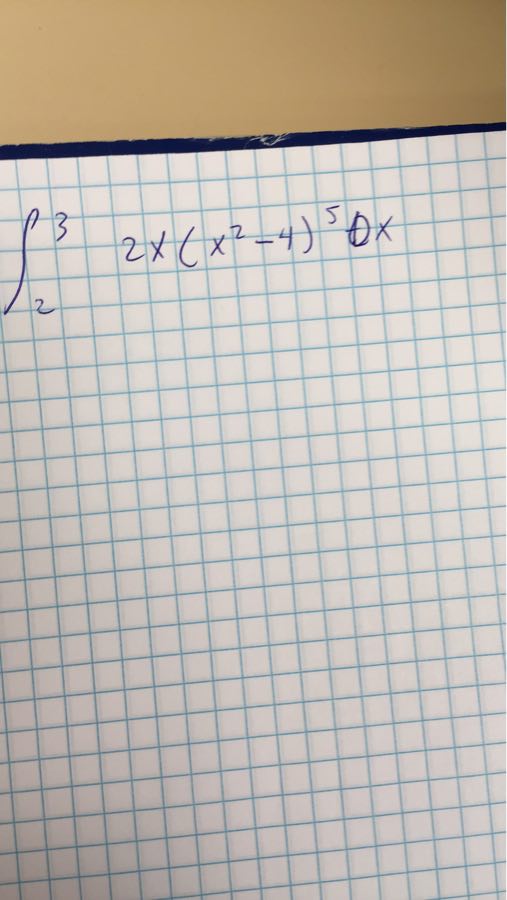 ∫₂³ 2x(x²-4)⁵dx